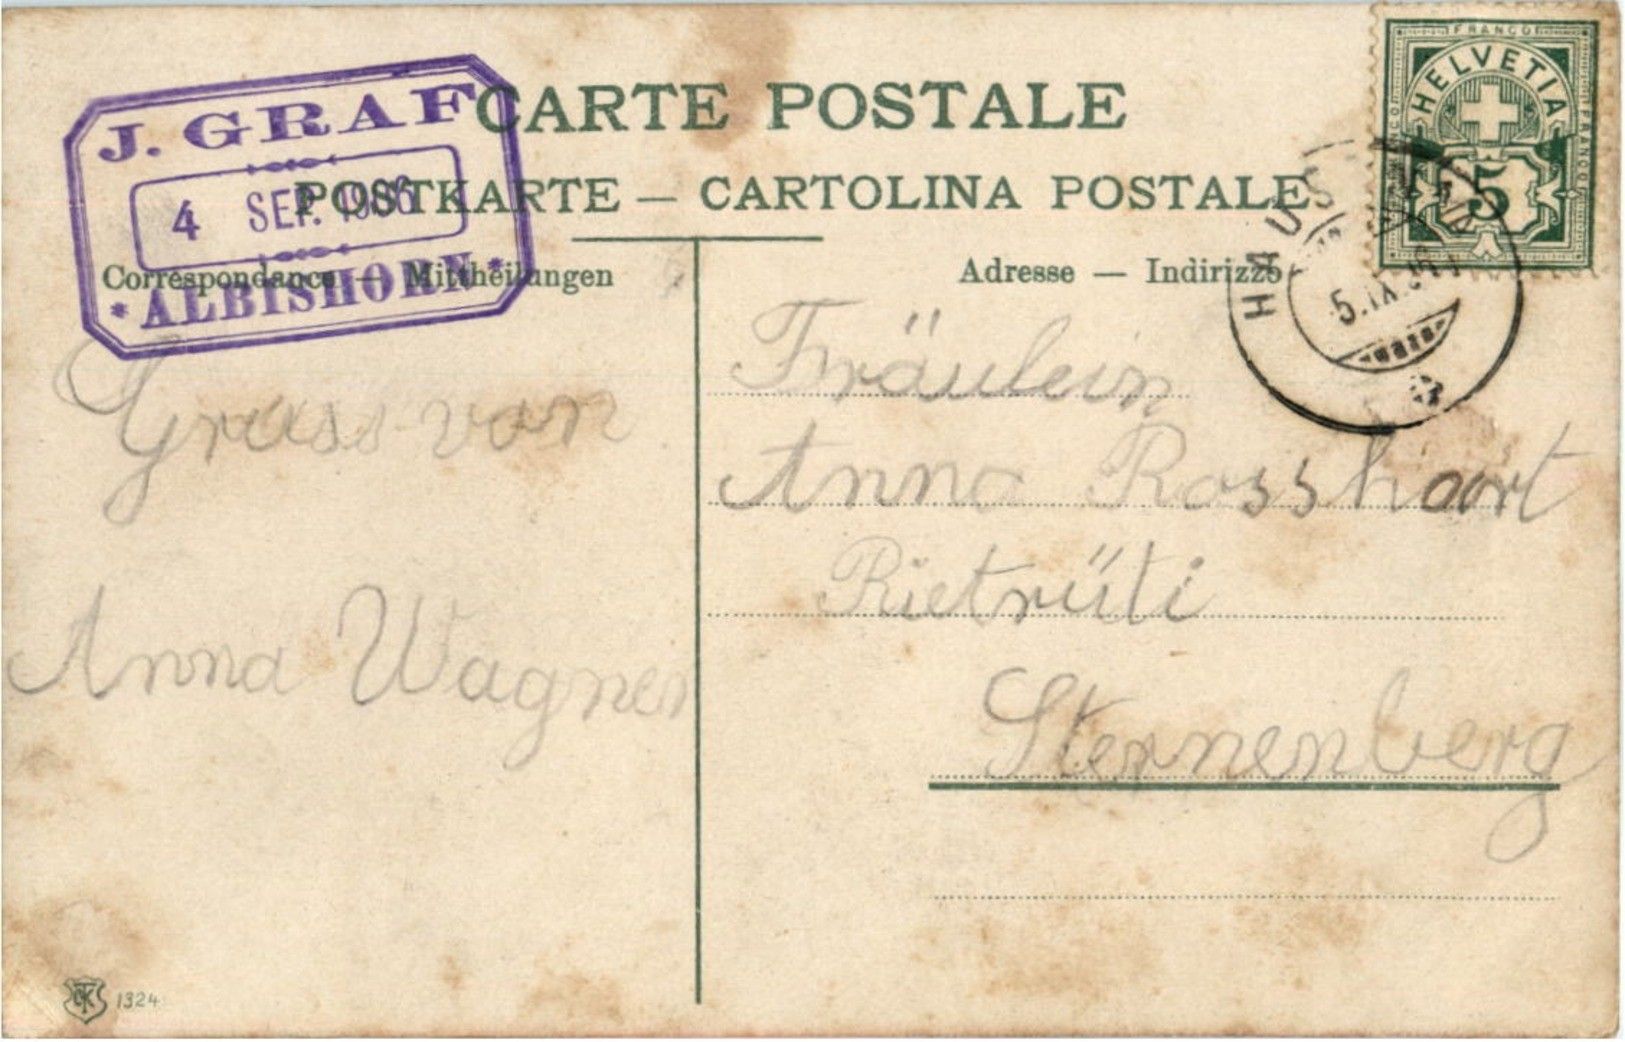 J. GRAF
4 SEP. 1906
* ALBISHORN *
CARTE POSTALE
POSTKARTE — CARTOLINA POSTALE
Correspondance — Mittheilungen
Adresse — Indirizzo
FRANCO
HELVETIA
FRANCO
FRANCO
5
HAUS
5.IX.06
VIII
Gruss von
Anna Wagner
Fräulein
Anna Rosshart
Rietrüti
Sternenberg
1324